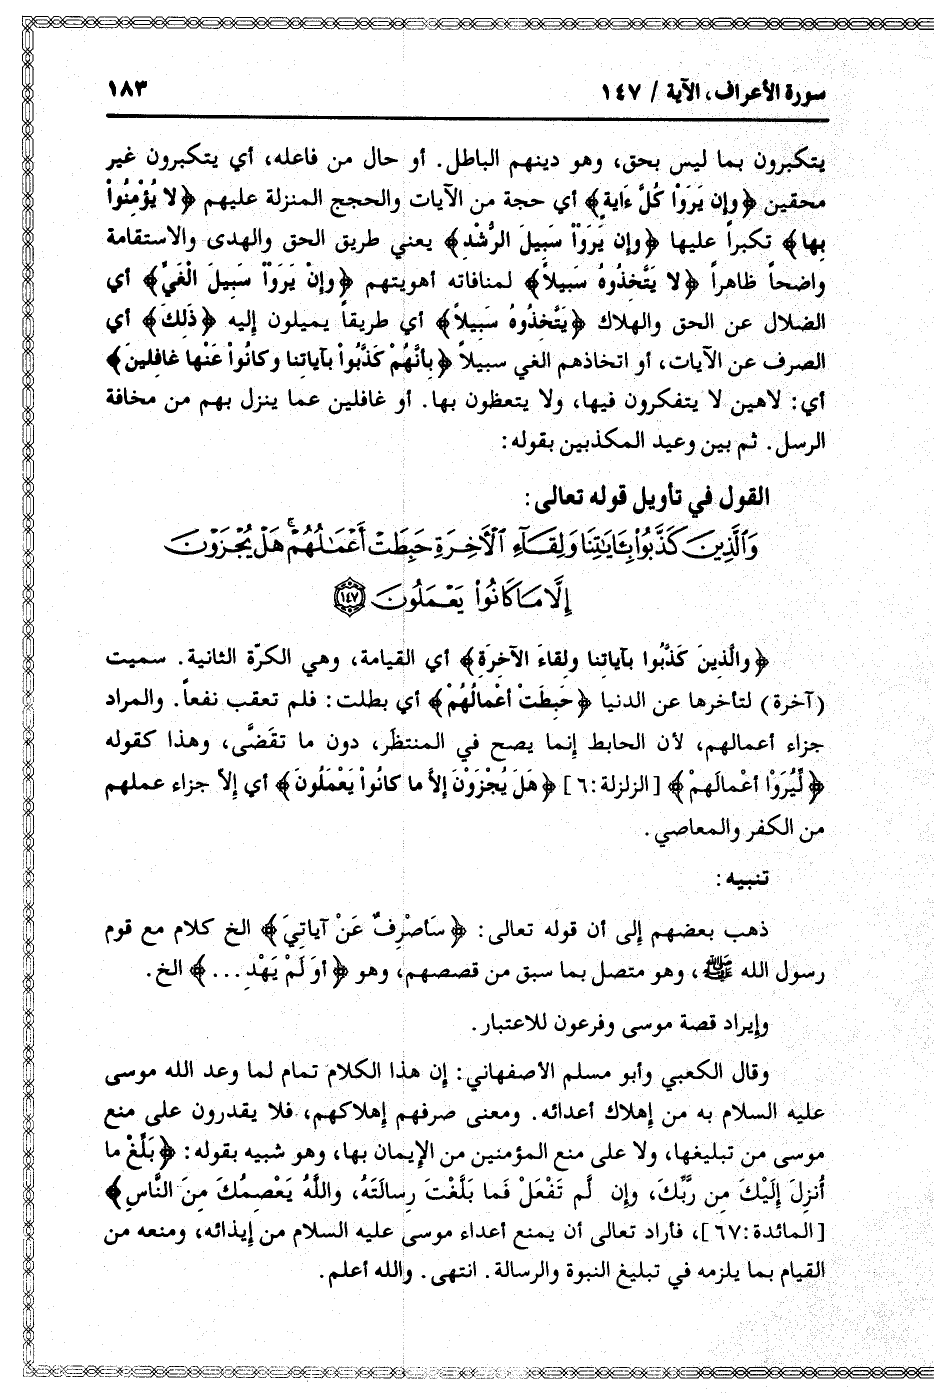 سورة الأعراف، الآية / ١٤٧ ١٨٣
يتكبرون بما ليس بحق، وهو دينهم الباطل. أو حال من فاعله، أي يتكبرون غير
محقين ﴿وإن يَرَوْا كُلَّ ءَايةٍ﴾ أي حجة من الآيات والحجج المنزلة عليهم ﴿لا يُؤْمِنُواْ
بِها﴾ تكبراً عليها ﴿وإن يَرَوْاْ سَبِيلَ الرُّشْدِ﴾ يعني طريق الحق والهدى والاستقامة
واضحاً ظاهراً ﴿لا يَتَّخِذُوهُ سَبِيلاً﴾ لمنافاته أهويتهم ﴿وإنْ يَرَواْ سَبِيلَ الْغَيِّ﴾ أي
الضلال عن الحق والهلاك ﴿يَتَّخِذُوهُ سَبِيلاً﴾ أي طريقاً يميلون إليه ﴿ذَلِكَ﴾ أي
الصرف عن الآيات، أو اتخاذهم الغي سبيلاً ﴿بأنَّهُمْ كَذَّبُواْ بآياتِنا وكانُواْ عَنْها غافلينَ﴾
أي: لاهين لا يتفكرون فيها، ولا يتعظون بها. أو غافلين عما ينزل بهم من مخافة
الرسل. ثم بين وعيد المكذبين بقوله:
القول في تأويل قوله تعالى:
وَٱلَّذِينَ كَذَّبُواْ بِـَٔايَٰتِنَا وَلِقَآءِ ٱلْأَخِرَةِ حَبِطَتْ أَعْمَٰلُهُمْۚ هَلْ يُجْزَوْنَ
إِلَّا مَا كَانُواْ يَعْمَلُونَ ١٤٧
﴿والَّذِينَ كَذَّبُوا بآياتنا ولقاءَ الآخِرَةِ﴾ أي القيامة، وهي الكرّة الثانية. سميت
(آخرة) لتأخرها عن الدنيا ﴿حَبِطَتْ أَعْمالُهُمْ﴾ أي بطلت: فلم تعقب نفعاً. والمراد
جزاء أعمالهم، لأن الحابط إنما يصح في المنتظَر، دون ما تقَضَّى، وهذا كقوله
﴿لِّيُرَوْا أعْمالَهمْ﴾ [الزلزلة:٦] ﴿هَلَ يُجْزَوْنَ إلاَّ ما كانُواْ يَعْمَلُونَ﴾ أي إلاّ جزاء عملهم
من الكفر والمعاصي.
تنبيه:
ذهب بعضهم إلى أن قوله تعالى: ﴿سَأصْرِفُ عَنْ آياتِيَ﴾ الخ كلام مع قوم
رسول الله ﷺ، وهو متصل بما سبق من قصصهم، وهو ﴿أوَ لَمْ يَهْدِ...﴾ الخ.
وإيراد قصة موسى وفرعون للاعتبار.
وقال الكعبي وأبو مسلم الأصفهاني: إن هذا الكلام تمام لما وعد الله موسى
عليه السلام به من إهلاك أعدائه. ومعنى صرفهم إهلاكهم، فلا يقدرون على منع
موسى من تبليغها، ولا على منع المؤمنين من الإيمان بها، وهو شبيه بقوله: ﴿بَلِّغْ ما
أُنزِلَ إلَيْكَ مِن رَّبِّكَ، وإن لَّم تَفْعَلْ فَما بَلَّغْتَ رِسالَتَهُ، واللَّهُ يَعْصِمُكَ مِنَ النَّاسِ﴾
[المائدة:٦٧]، فأراد تعالى أن يمنع أعداء موسى عليه السلام من إيذائه، ومنعه من
القيام بما يلزمه في تبليغ النبوة والرسالة. انتهى. والله أعلم.